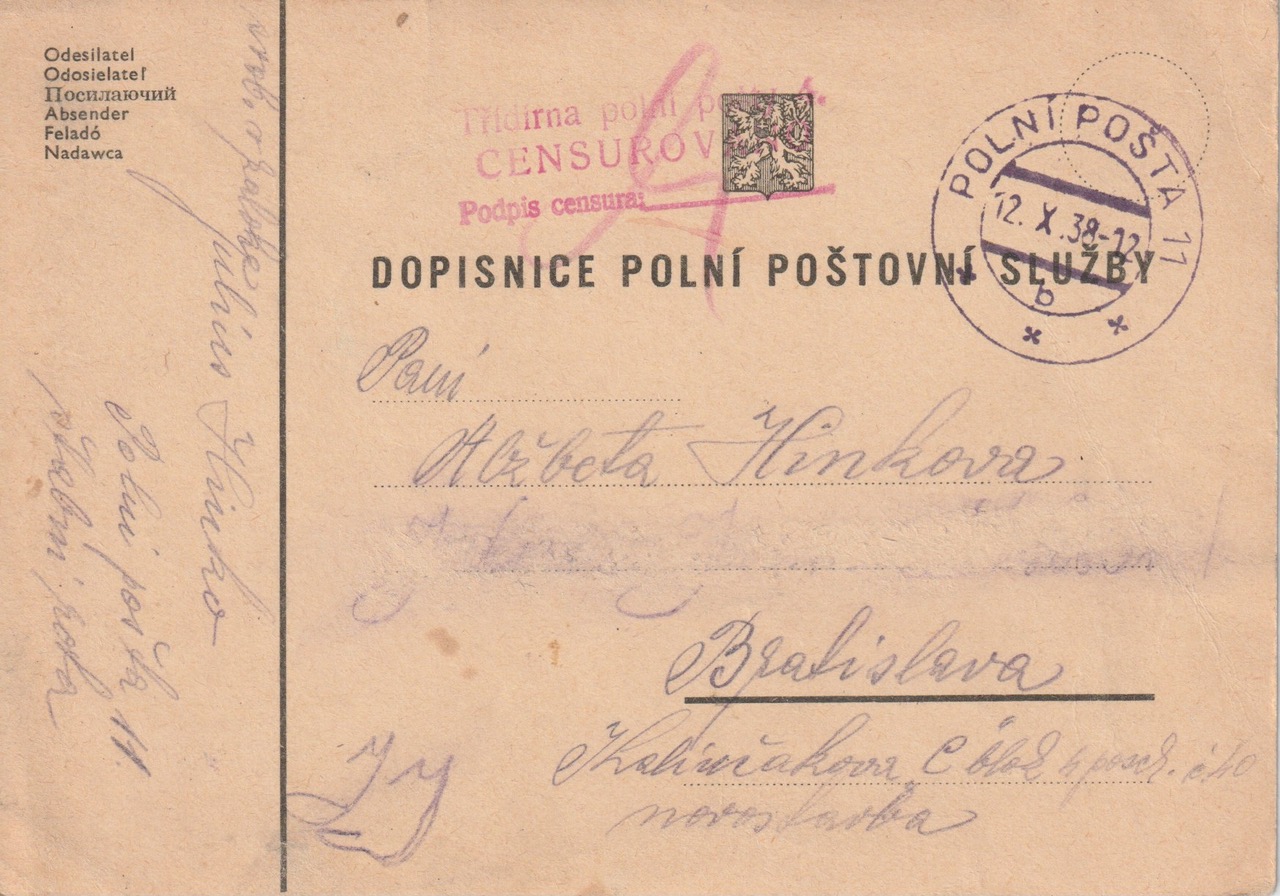 Odesilatel
Odosielateľ
Посилаючий
Absender
Feladó
Nadawca
v zálohe
Julius Hinko
Polní pošta 11.
Třídírna polní pošty
CENSUROV
Podpis censura:
POLNÍ POŠTA 11
12. X .38-12
b
DOPISNICE POLNÍ POŠTOVNÍ SLUŽBY
Paní
Alžbeta Hinkova
Bratislava
Kalinčakova C blok 4 posch. č 40
novostavba